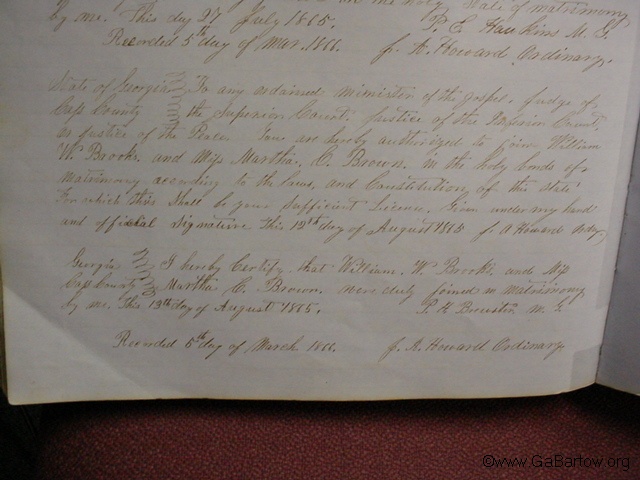 by me. This day 27 July 1865. P. E. Hawkins M. G.
Recorded 5th day of Mar. 1866. J. A. Howard Ordinary.
State of Georgia To any ordained minister of the Gospel, Judge of
Cass County the Superior Court, Justice of the Inferior Court,
or Justice of the Peace. You are hereby authorized to join William
W. Brooks and Miss Martha. C. Brown. in the holy bonds of
matrimony according to the laws, and Constitution of the state
For which this Shall be your Sufficient License. Given under my hand
and official signature This 12th day of August 1865 J. A Howard Ordy
Georgia I hereby Certify that William. W. Brooks. and Miss
Cass County Martha C. Brown. were duly joined in matrimony
by me. This 13th day of August 1865. M. G
Recorded 5th day of March 1866. J. A. Howard Ordinary.
©www.GaBartow.org